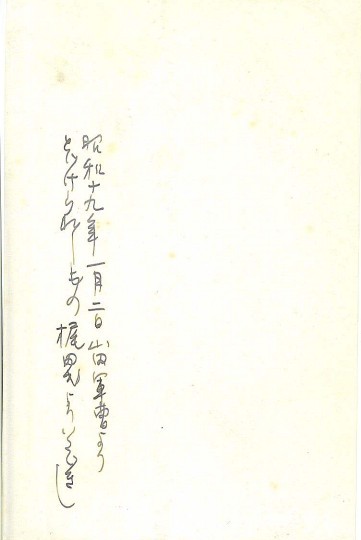 昭和十九年一月二日山田軍曹より
とゞけられしもの 梶兄よりいたゞきし